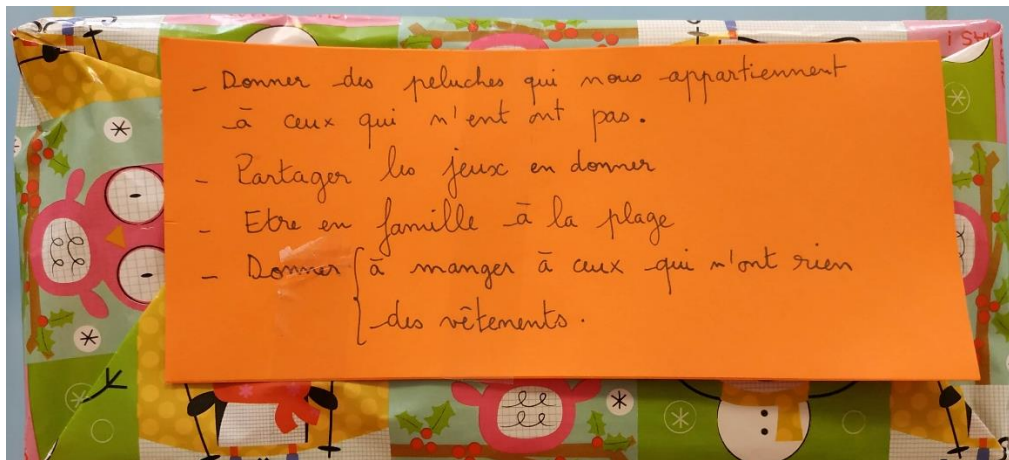 - Donner des peluches qui nous appartiennent
à ceux qui n'ent ont pas.
- Partager les jeux en donner
- Etre en famille à la plage
- Donner { à manger à ceux qui n'ont rien
des vêtements.